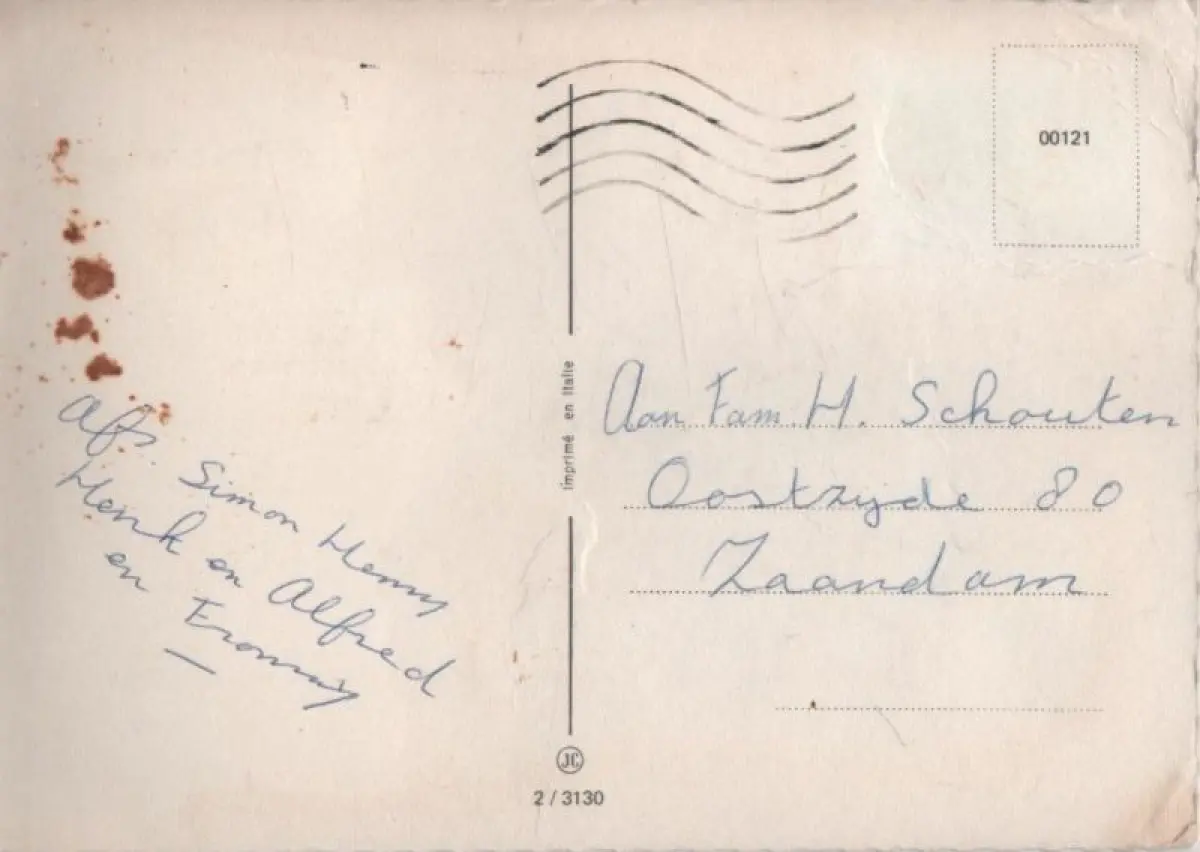 00121
Aan Fam. H. Schouten
Oostzyde 80
Zaandam
Afs Simon Henny
Henk en Alfred
en Fronny
imprimé en Italie
JC
2 / 3130